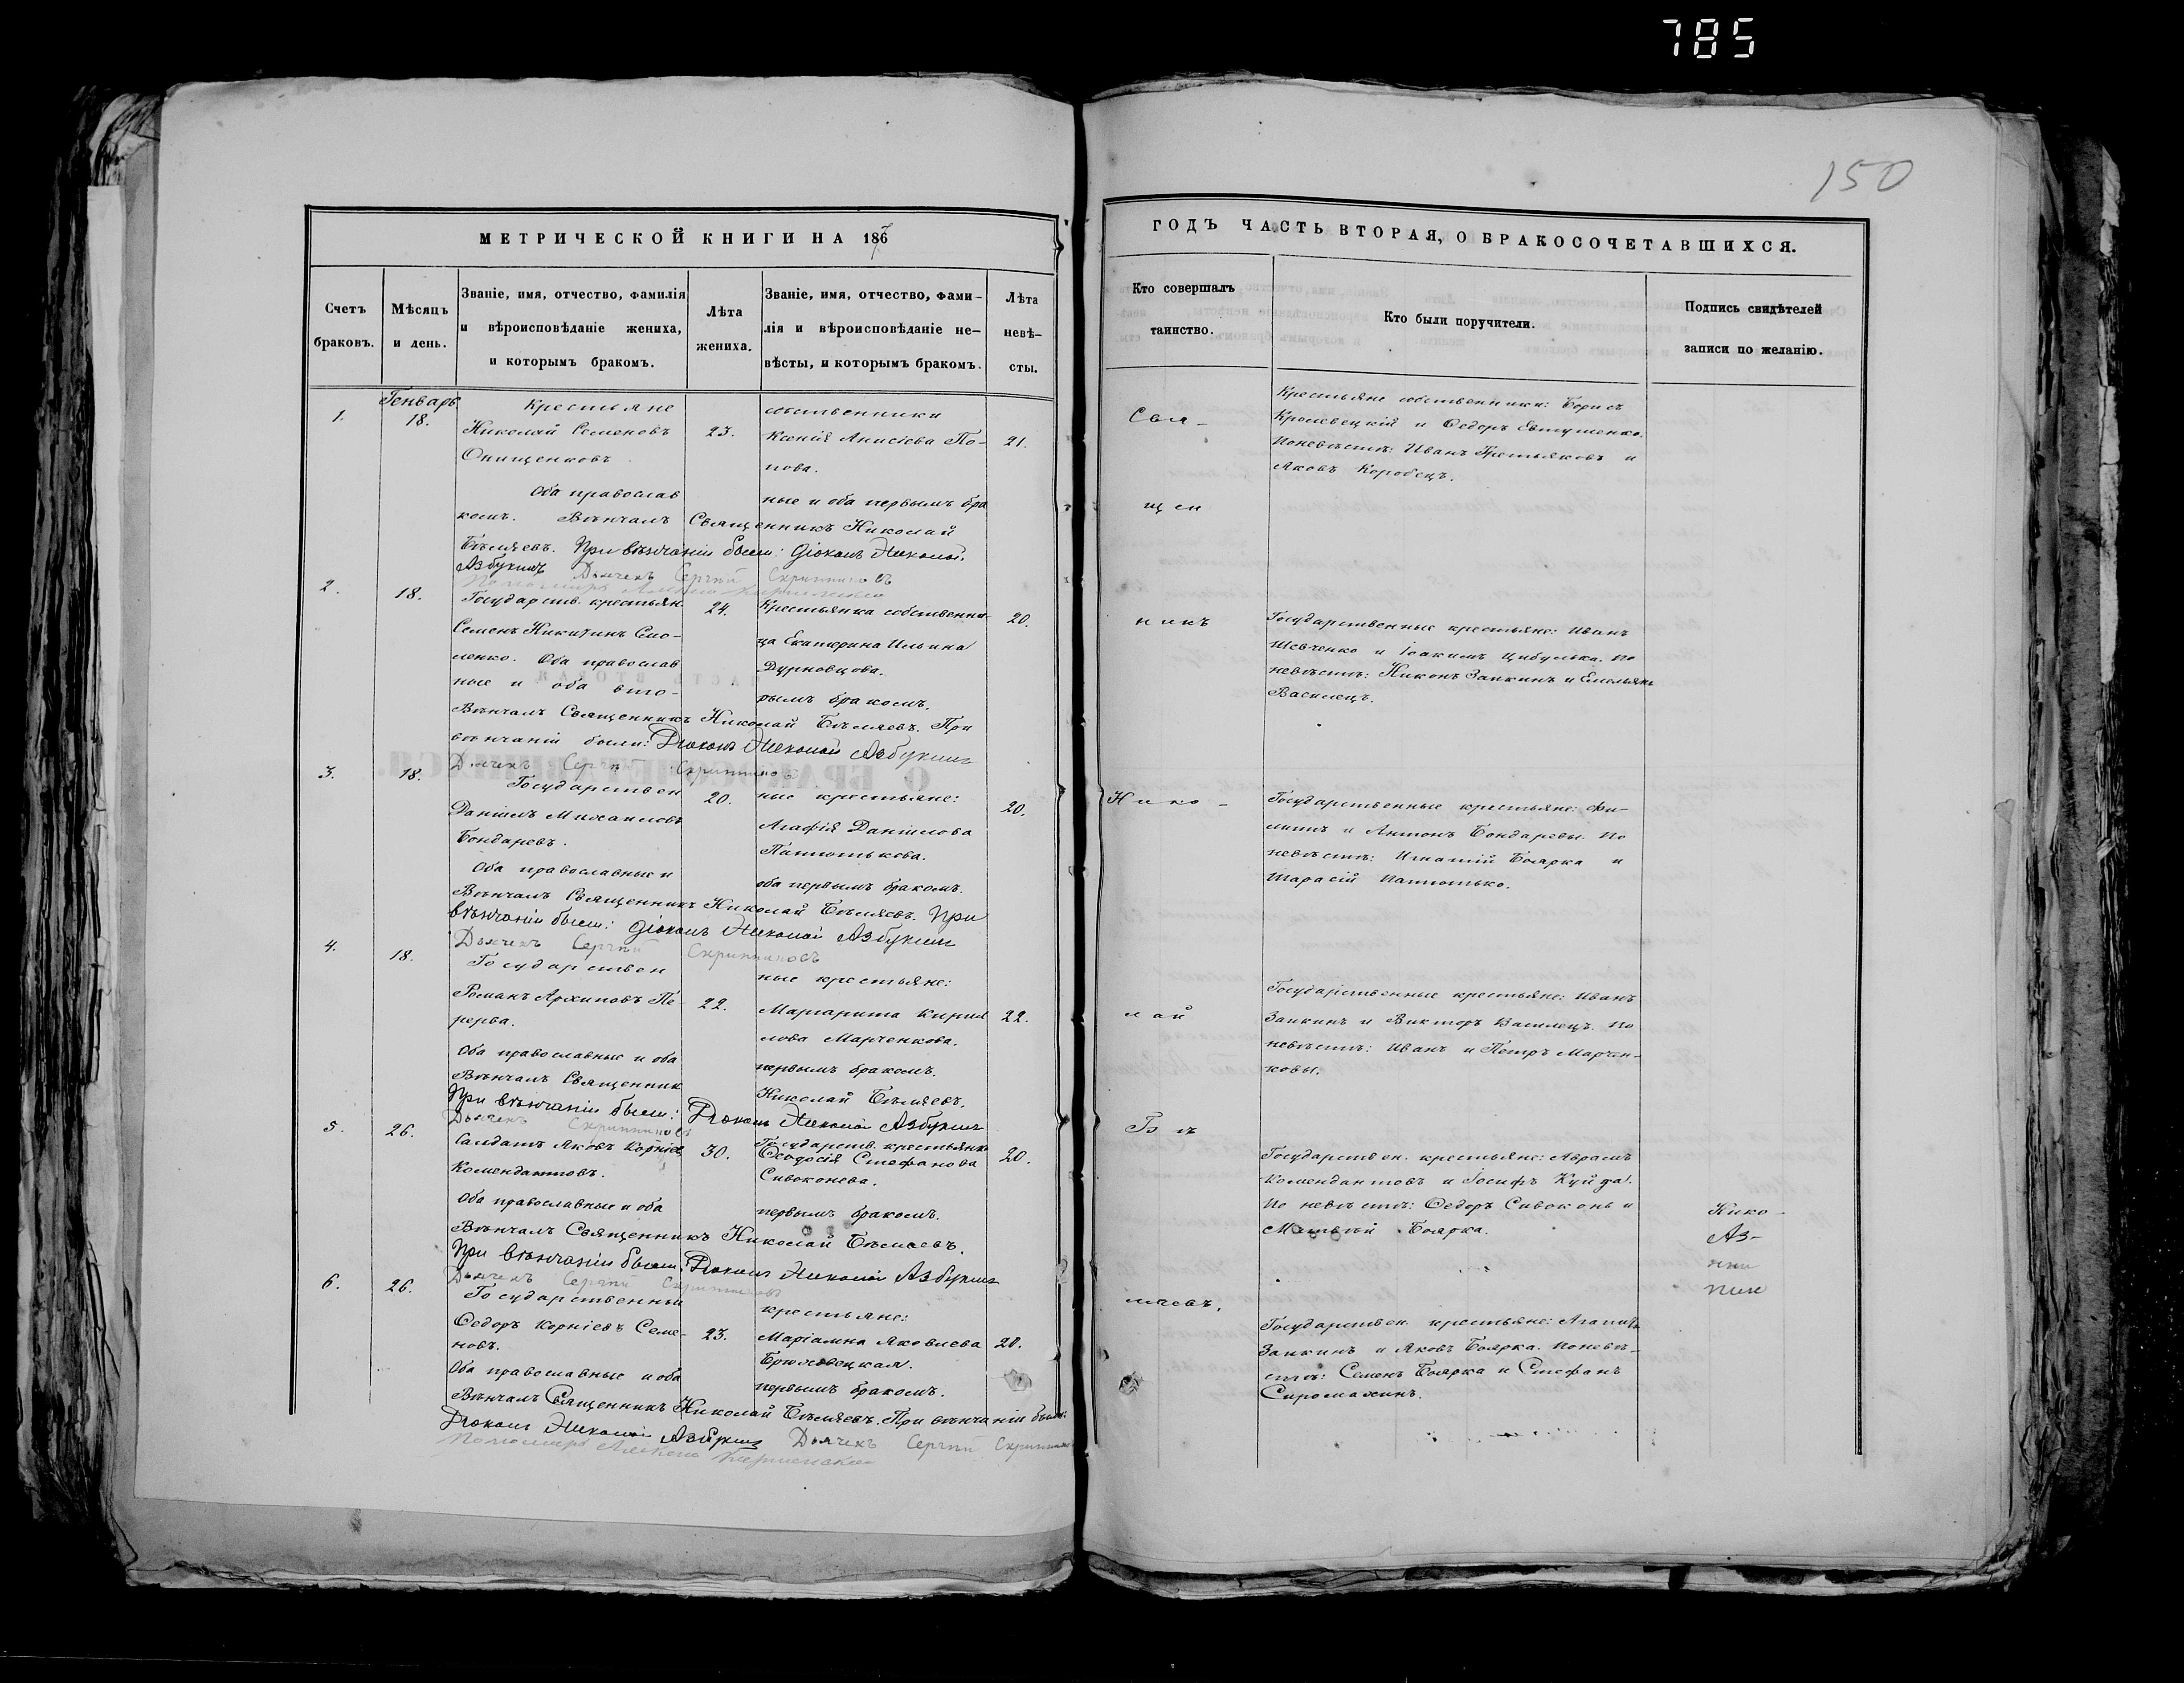 785
150
МЕТРИЧЕСКОЙ КНИГИ НА 1867
Счетъ браковъ.
Мѣсяцъ и день.
Званіе, имя, отчество, фамилія
и вѣроисповѣданіе жениха,
и которымъ бракомъ.
Лѣта жениха.
Званіе, имя, отчество, фами-
лія и вѣроисповѣданіе не-
вѣсты, и которымъ бракомъ.
Лѣта невѣ-
сты.
1.
Генварь
18.
Крестьяне
Николай Семеновъ
Онищенковъ
23.
собственники
Ксенія Анисіева По-
пова.
21.
Оба православ
ные и оба первымъ бра
комъ. Вѣнчалъ Священникъ Николай
Бѣляевъ. При вѣнчаніи были: Діаконъ Николай
Азбукинъ Дьячекъ Сергѣй
2.
18.
Государств. крестьян.
Семенъ Никитинъ Смо-
ленко. Оба православ
ные и оба вто-
24.
Крестьянка собственни-
ца Екатерина Ильина
Дурновцова.
рымъ бракомъ.
20.
Вѣнчалъ Священникъ Николай Бѣляевъ. При
вѣнчаніи были: Діаконъ Николай Азбукинъ
Дьячекъ Сергѣй
3.
18.
Государствен
Даніилъ Михаиловъ
Бондаревъ.
20.
ные крестьяне:
Агафія Даніилова
20.
Оба православные и
оба первымъ бракомъ.
Вѣнчалъ Священникъ Николай Бѣляевъ. При
вѣнчаніи были: Діаконъ Николай Азбукинъ
Дьячекъ Сергѣй
4.
18.
Государствен
Романъ Архиповъ Пе-
рерва.
22.
ные крестьяне:
Маргарита Кирил
лова Марченкова.
22.
Оба православные и оба
первымъ бракомъ.
Вѣнчалъ Священник Николай Бѣляевъ.
При вѣнчаніи были: Діаконъ Николай Азбукинъ
Дьячекъ
5.
26.
Солдатъ Яковъ Корніев
Комендантовъ.
30.
Государств. крестьянка
Ѳеодосія Стефанова
Сивоконева.
20.
Оба православные и оба
первымъ бракомъ.
Вѣнчалъ Священникъ Николай Бѣляевъ.
При вѣнчаніи были: Діаконъ Николай Азбукинъ
Дьячекъ Сергѣй
6.
26.
Государственные
Ѳедоръ Корніевъ Семе-
новъ.
23.
крестьяне:
Маріамна Яковлева
Брюховецкая.
20.
Оба православные и оба
первымъ бракомъ.
Вѣнчалъ Священникъ Николай Бѣляевъ. При вѣнчаніи были:
Діаконъ Николай Азбукинъ Дьячекъ Сергѣй
ГОДЪ ЧАСТЬ ВТОРАЯ, О БРАКОСОЧЕТАВШИХСЯ.
Кто совершалъ
таинство.
Кто были поручители.
Подпись свидѣтелей
записи по желанію.
Свя-
щен
никъ
Нико-
лай
Бѣ
ляевъ.
Крестьяне собственники: Борисъ
Кролевецкій и Ѳедоръ Евтушенко.
По невѣстѣ: Иванъ Третьяковъ и
Яковъ Коробецъ.
Государственные крестьяне: Иванъ
Шевченко и Іоакимъ Цибулька. По
невѣстѣ: Никонъ Заикинъ и Емельянъ
Василецъ.
Государственные крестьяне: Фи-
липъ и Антонъ Бондаревы. По
невѣстѣ: Игнатій Боярка и
Тарасій
Государственные крестьяне: Иванъ
Заикинъ и Викторъ Василецъ. По
невѣстѣ: Иванъ и Петръ Марчен-
ковы.
Государствен. крестьяне: Аврамъ
Комендантовъ и Іосифъ Куйда.
По невѣстѣ: Ѳедоръ Сивоконь и
Матвѣй Боярка.
Государствен. крестьяне: Агапитъ
Заикинъ и Яковъ Боярка. По невѣ-
стѣ: Семенъ Боярка и Стефанъ
Сиромахинъ.
Нико-
Аз-